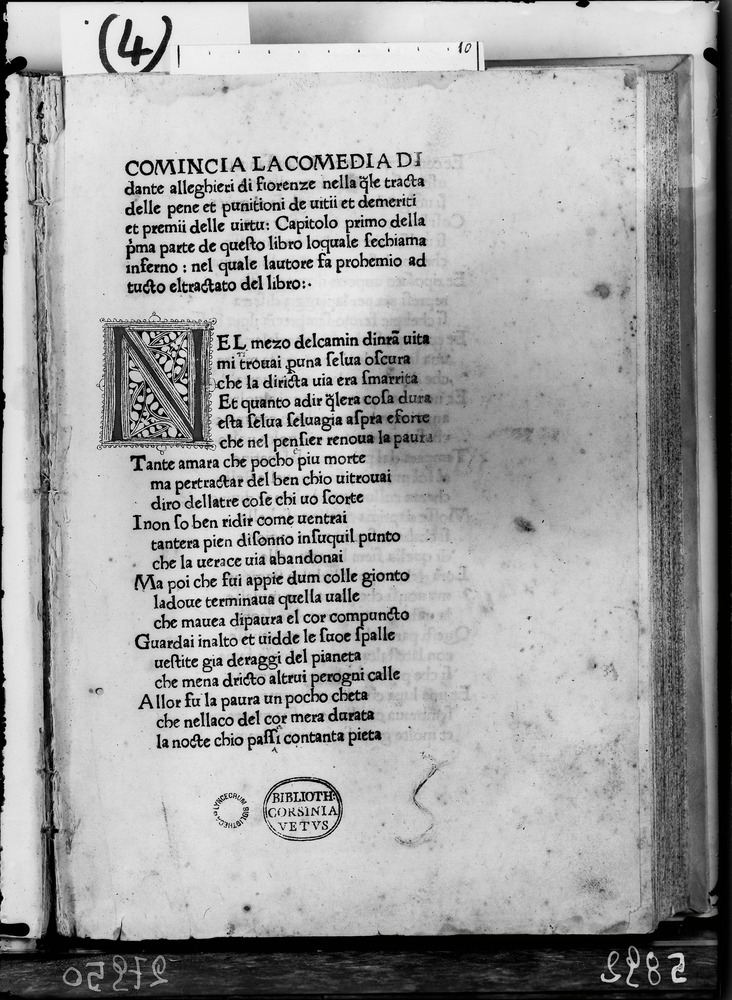 (4)
10
COMINCIA LACOMEDIA DI
dante alleghieri di fiorenze nella q̃le tracta
delle pene et punitioni de uitii et demeriti
et premii delle uirtu: Capitolo primo della
p̃ma parte de questo libro loquale sechiama
inferno : nel quale lautore fa prohemio ad
tucto eltractato del libro:·
NEL mezo delcamin dinr̃a uita
mi trouai ꝑuna selua oscura
che la diricta uia era smarrita
Et quanto adir q̃lera cosa dura
esta selua seluagia aspra eforte
che nel pensier renoua la paura
Tante amara che pocho piu morte
ma pertractar del ben chio uitrouai
diro dellatre cose chi uo scorte
I non so ben ridir come uentrai
tantera pien disonno insuquil punto
che la uerace uia abandonai
Ma poi che fui appie dum colle gionto
ladoue terminaua quella ualle
che mauea dipaura el cor compuncto
Guardai inalto et uidde le suoe spalle
uestite gia deraggi del pianeta
che mena dricto altrui perogni calle
Allor fu la paura un pocho cheta
che nellaco del cor mera durata
la nocte chio passi contanta pieta
LYNCEORUM BIBLIOTHECA
BIBLIOTH.
CORSINIA
VETVS
5892